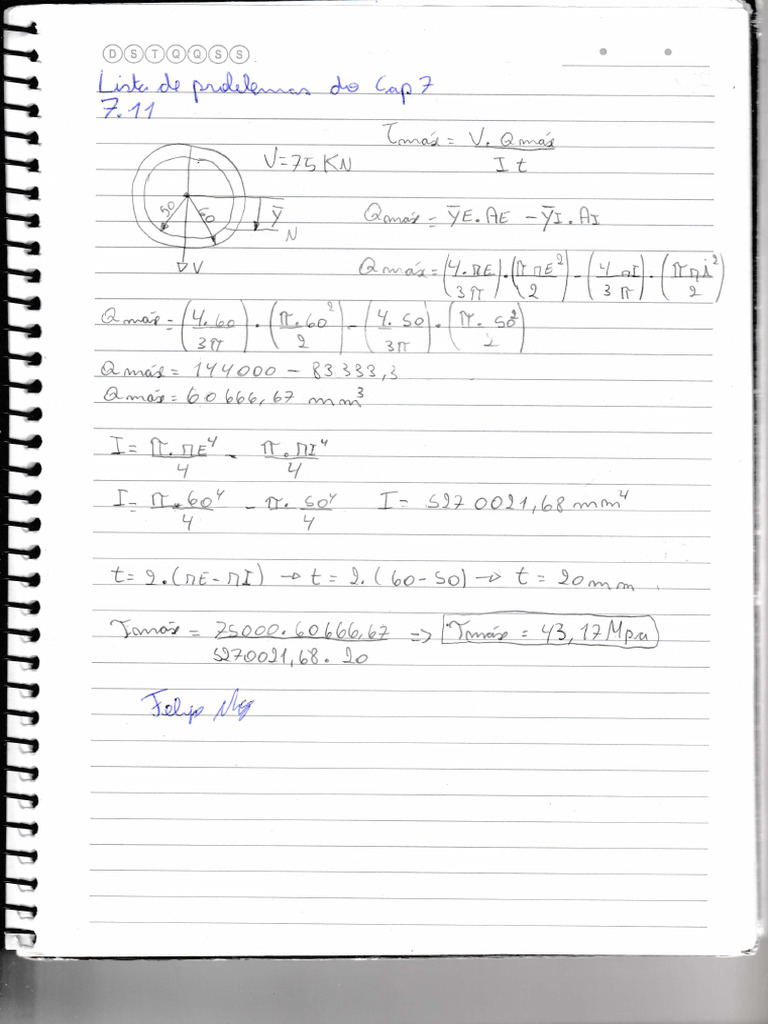 D S T Q Q S S
Lista de problemas do Cap 7
7.11
τmáx = V. Qmáx / I t
V=75 KN
50 60 ȳ N
V
Qmáx = ȳE.AE - ȳI.AI
Qmáx = (4.rE/3π).(π rE²/2) - (4 rI/3π).(π ri²/2)
Qmáx = (4.60/3π).(π.60²/2) - (4.50/3π).(π.50²/2)
Qmáx = 144000 - 83333,3
Qmáx = 60666,67 mm³
I = π.rE⁴/4 - π.rI⁴/4
I = π.60⁴/4 - π.50⁴/4 I = 5270021,68 mm⁴
t = 2.(rE-rI) → t = 2.(60-50) → t = 20mm
τmáx = 75000.60666,67 / 5270021,68.20 => τmáx = 43,17Mpa